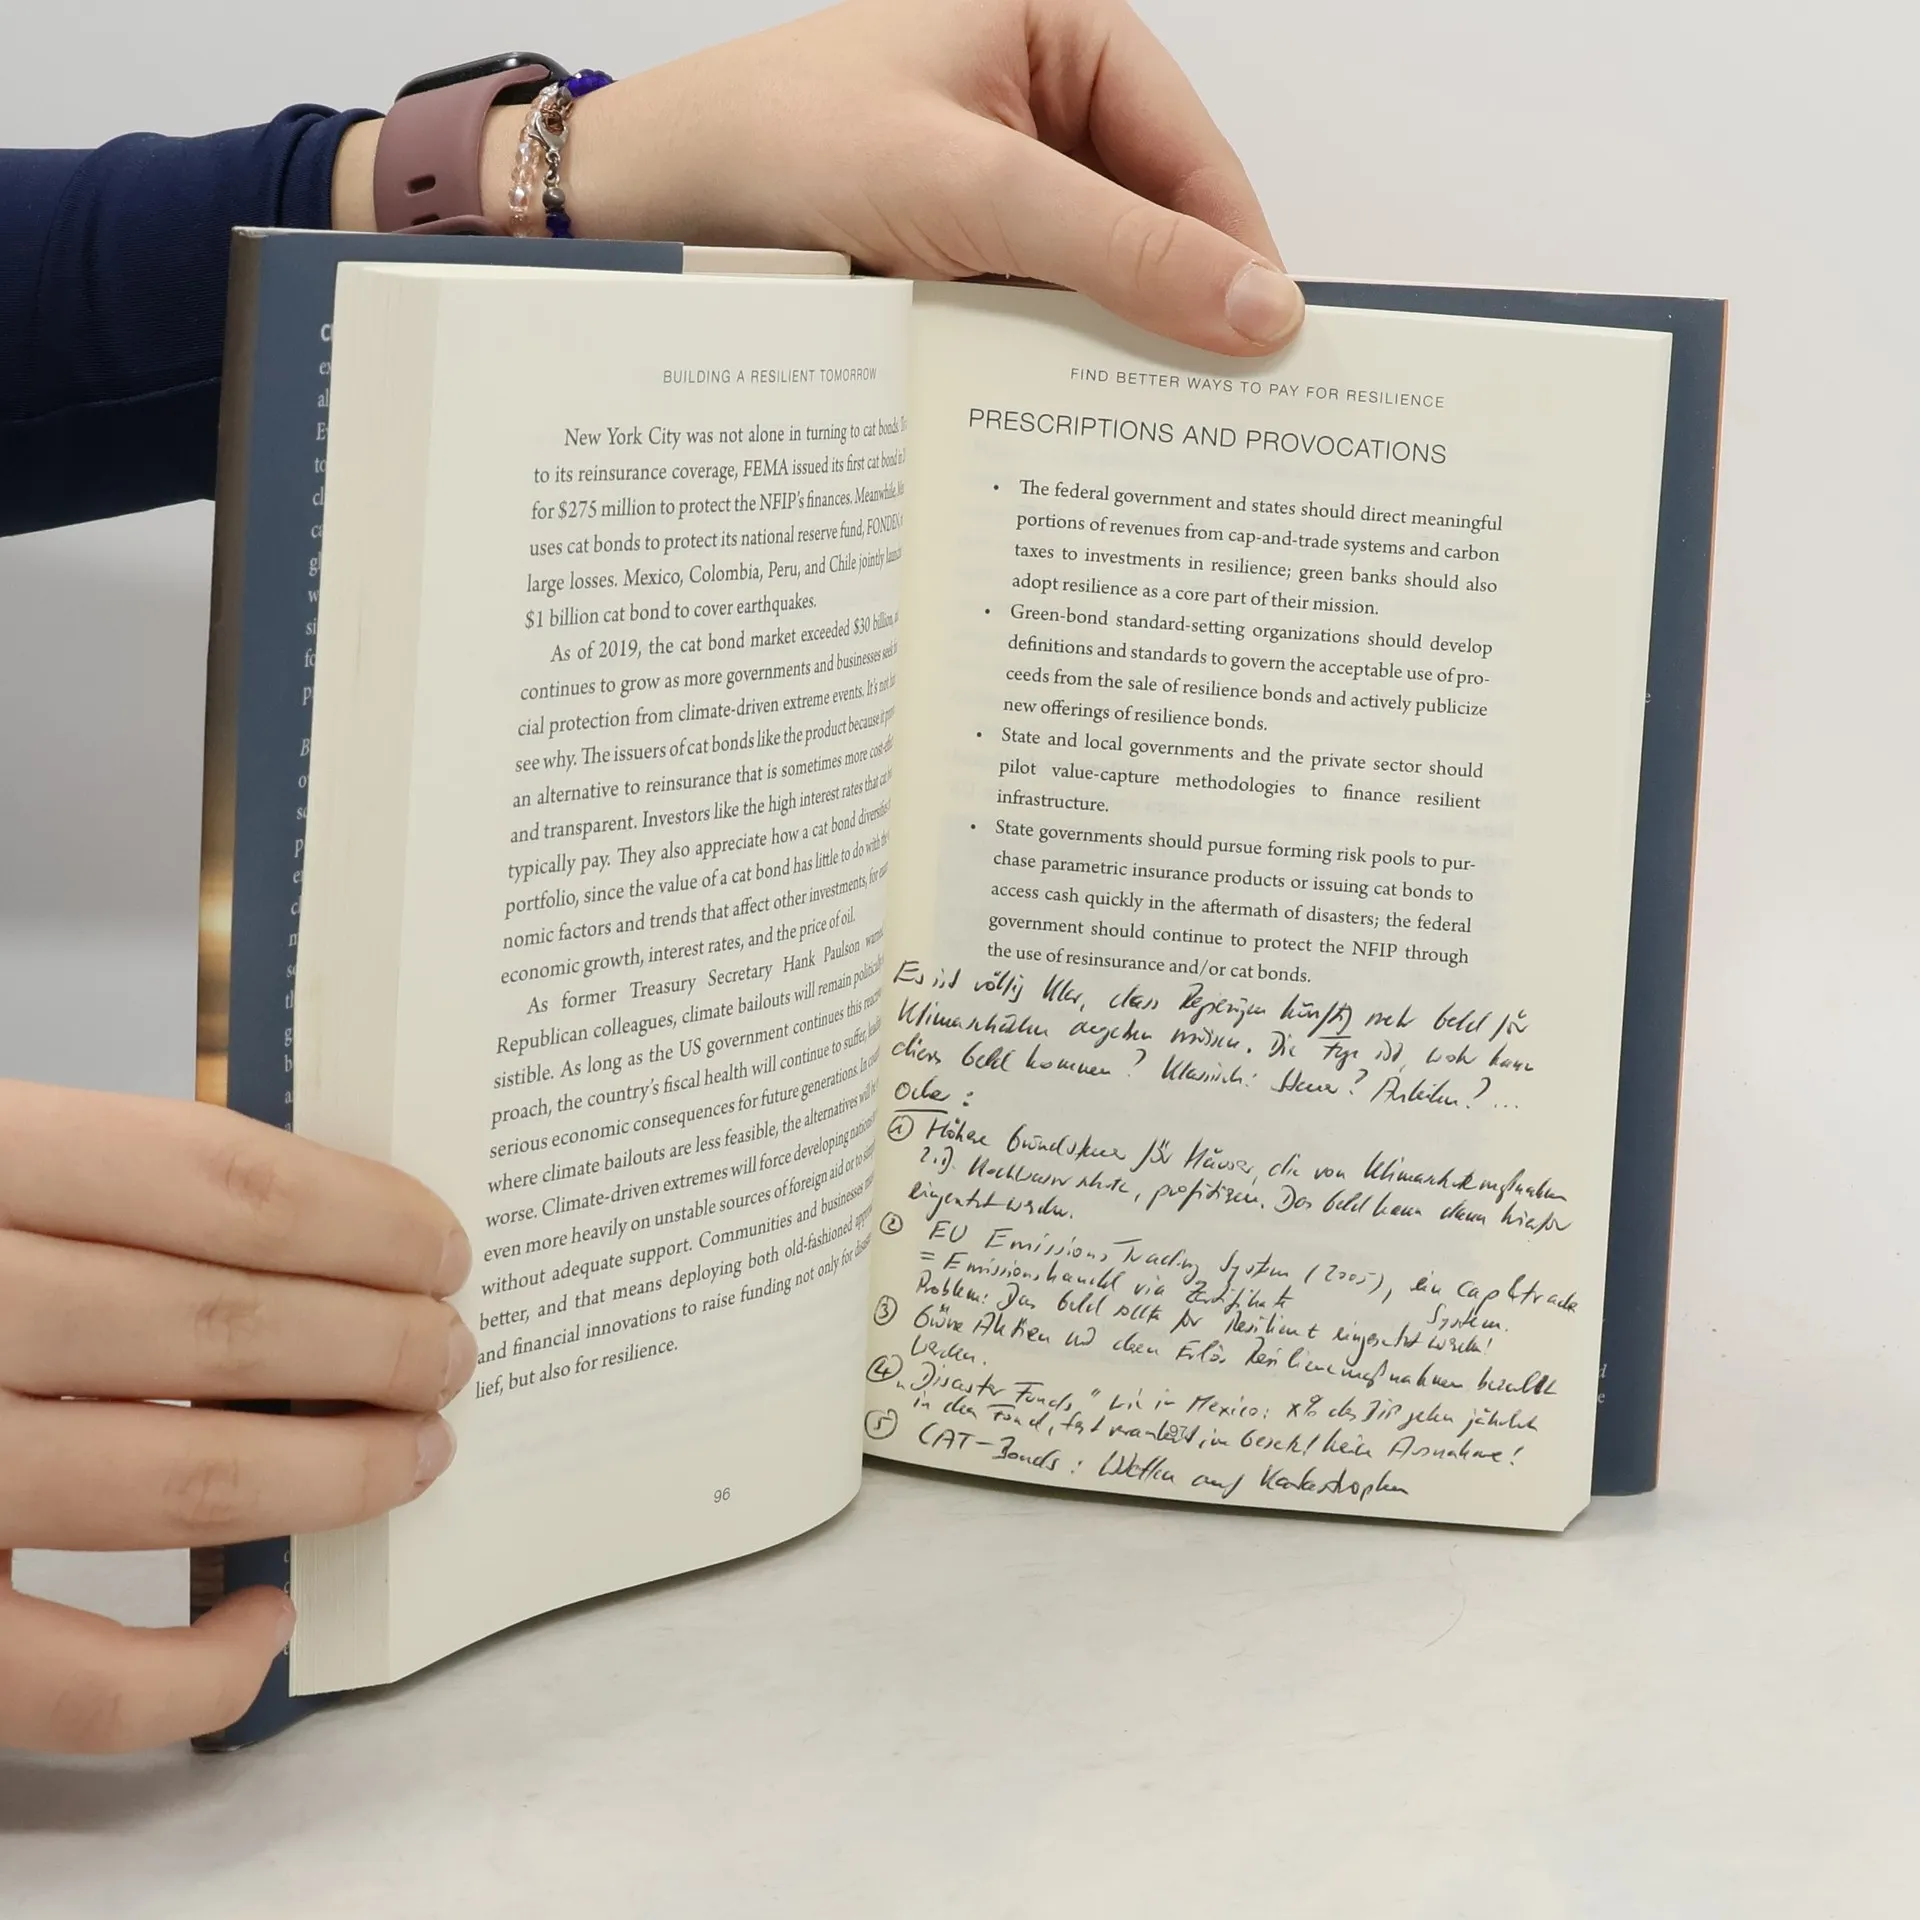 BUILDING A RESILIENT TOMORROW
New York City was not alone in turning to cat bonds.
to its reinsurance coverage, FEMA issued its first cat bond in
for $275 million to protect the NFIP's finances. Meanwhile,
uses cat bonds to protect its national reserve fund, FONDEN,
large losses. Mexico, Colombia, Peru, and Chile jointly
$1 billion cat bond to cover earthquakes.
As of 2019, the cat bond market exceeded $30 billion,
continues to grow as more governments and businesses seek
cial protection from climate-driven extreme events. It's not
see why. The issuers of cat bonds like the product because it
an alternative to reinsurance that is sometimes more
and transparent. Investors like the high interest rates that cat
typically pay. They also appreciate how a cat bond diversifies
portfolio, since the value of a cat bond has little to do with the
nomic factors and trends that affect other investments, for
economic growth, interest rates, and the price of oil.
As former Treasury Secretary Hank Paulson warned
Republican colleagues, climate bailouts will remain politically
sistible. As long as the US government continues this
proach, the country's fiscal health will continue to suffer,
serious economic consequences for future generations. In
where climate bailouts are less feasible, the alternatives will be
worse. Climate-driven extremes will force developing nations
even more heavily on unstable sources of foreign aid or to
without adequate support. Communities and businesses
better, and that means deploying both old-fashioned
and financial innovations to raise funding not only for
lief, but also for resilience.
96
FIND BETTER WAYS TO PAY FOR RESILIENCE
PRESCRIPTIONS AND PROVOCATIONS
• The federal government and states should direct meaningful
portions of revenues from cap-and-trade systems and carbon
taxes to investments in resilience; green banks should also
adopt resilience as a core part of their mission.
• Green-bond standard-setting organizations should develop
definitions and standards to govern the acceptable use of pro-
ceeds from the sale of resilience bonds and actively publicize
new offerings of resilience bonds.
• State and local governments and the private sector should
pilot value-capture methodologies to finance resilient
infrastructure.
• State governments should pursue forming risk pools to pur-
chase parametric insurance products or issuing cat bonds to
access cash quickly in the aftermath of disasters; the federal
government should continue to protect the NFIP through
the use of resinsurance and/or cat bonds.
Es ist völlig klar, dass Regierungen künftig mehr Geld für
Klimaschäden ausgeben müssen. Die Frage ist, woher kann
dieses Geld kommen? Klassisch: Steuer? Anleihen? ...
Oder:
① Höhere Grundsteuer für Häuser, die von Klimaschutzmaßnahmen
z.B. Hochwasserschutz, profitieren. Das Geld kann dann hierfür
eingesetzt werden.
② EU Emissions Trading System (2005), ein Cap & trade
System.
= Emissionshandel via Zertifikate
Problem: Das Geld sollte für Resilienz eingesetzt werden!
③ Grüne Aktien und dem Erlös Resilienzmaßnahmen bezahlt
werden.
④ „Disaster Funds" wie in Mexico: x% des BIP gehen jährlich
in den Fond, fest verankert im Gesetz! keine Ausnahme!
⑤ CAT-Bonds: Wetten auf Katastrophen